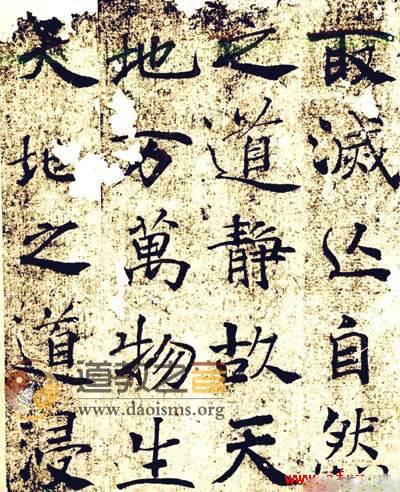 取滅亾自然
之道靜故天
地万萬物生
天地之道浸
道教之音
www.daoisms.org